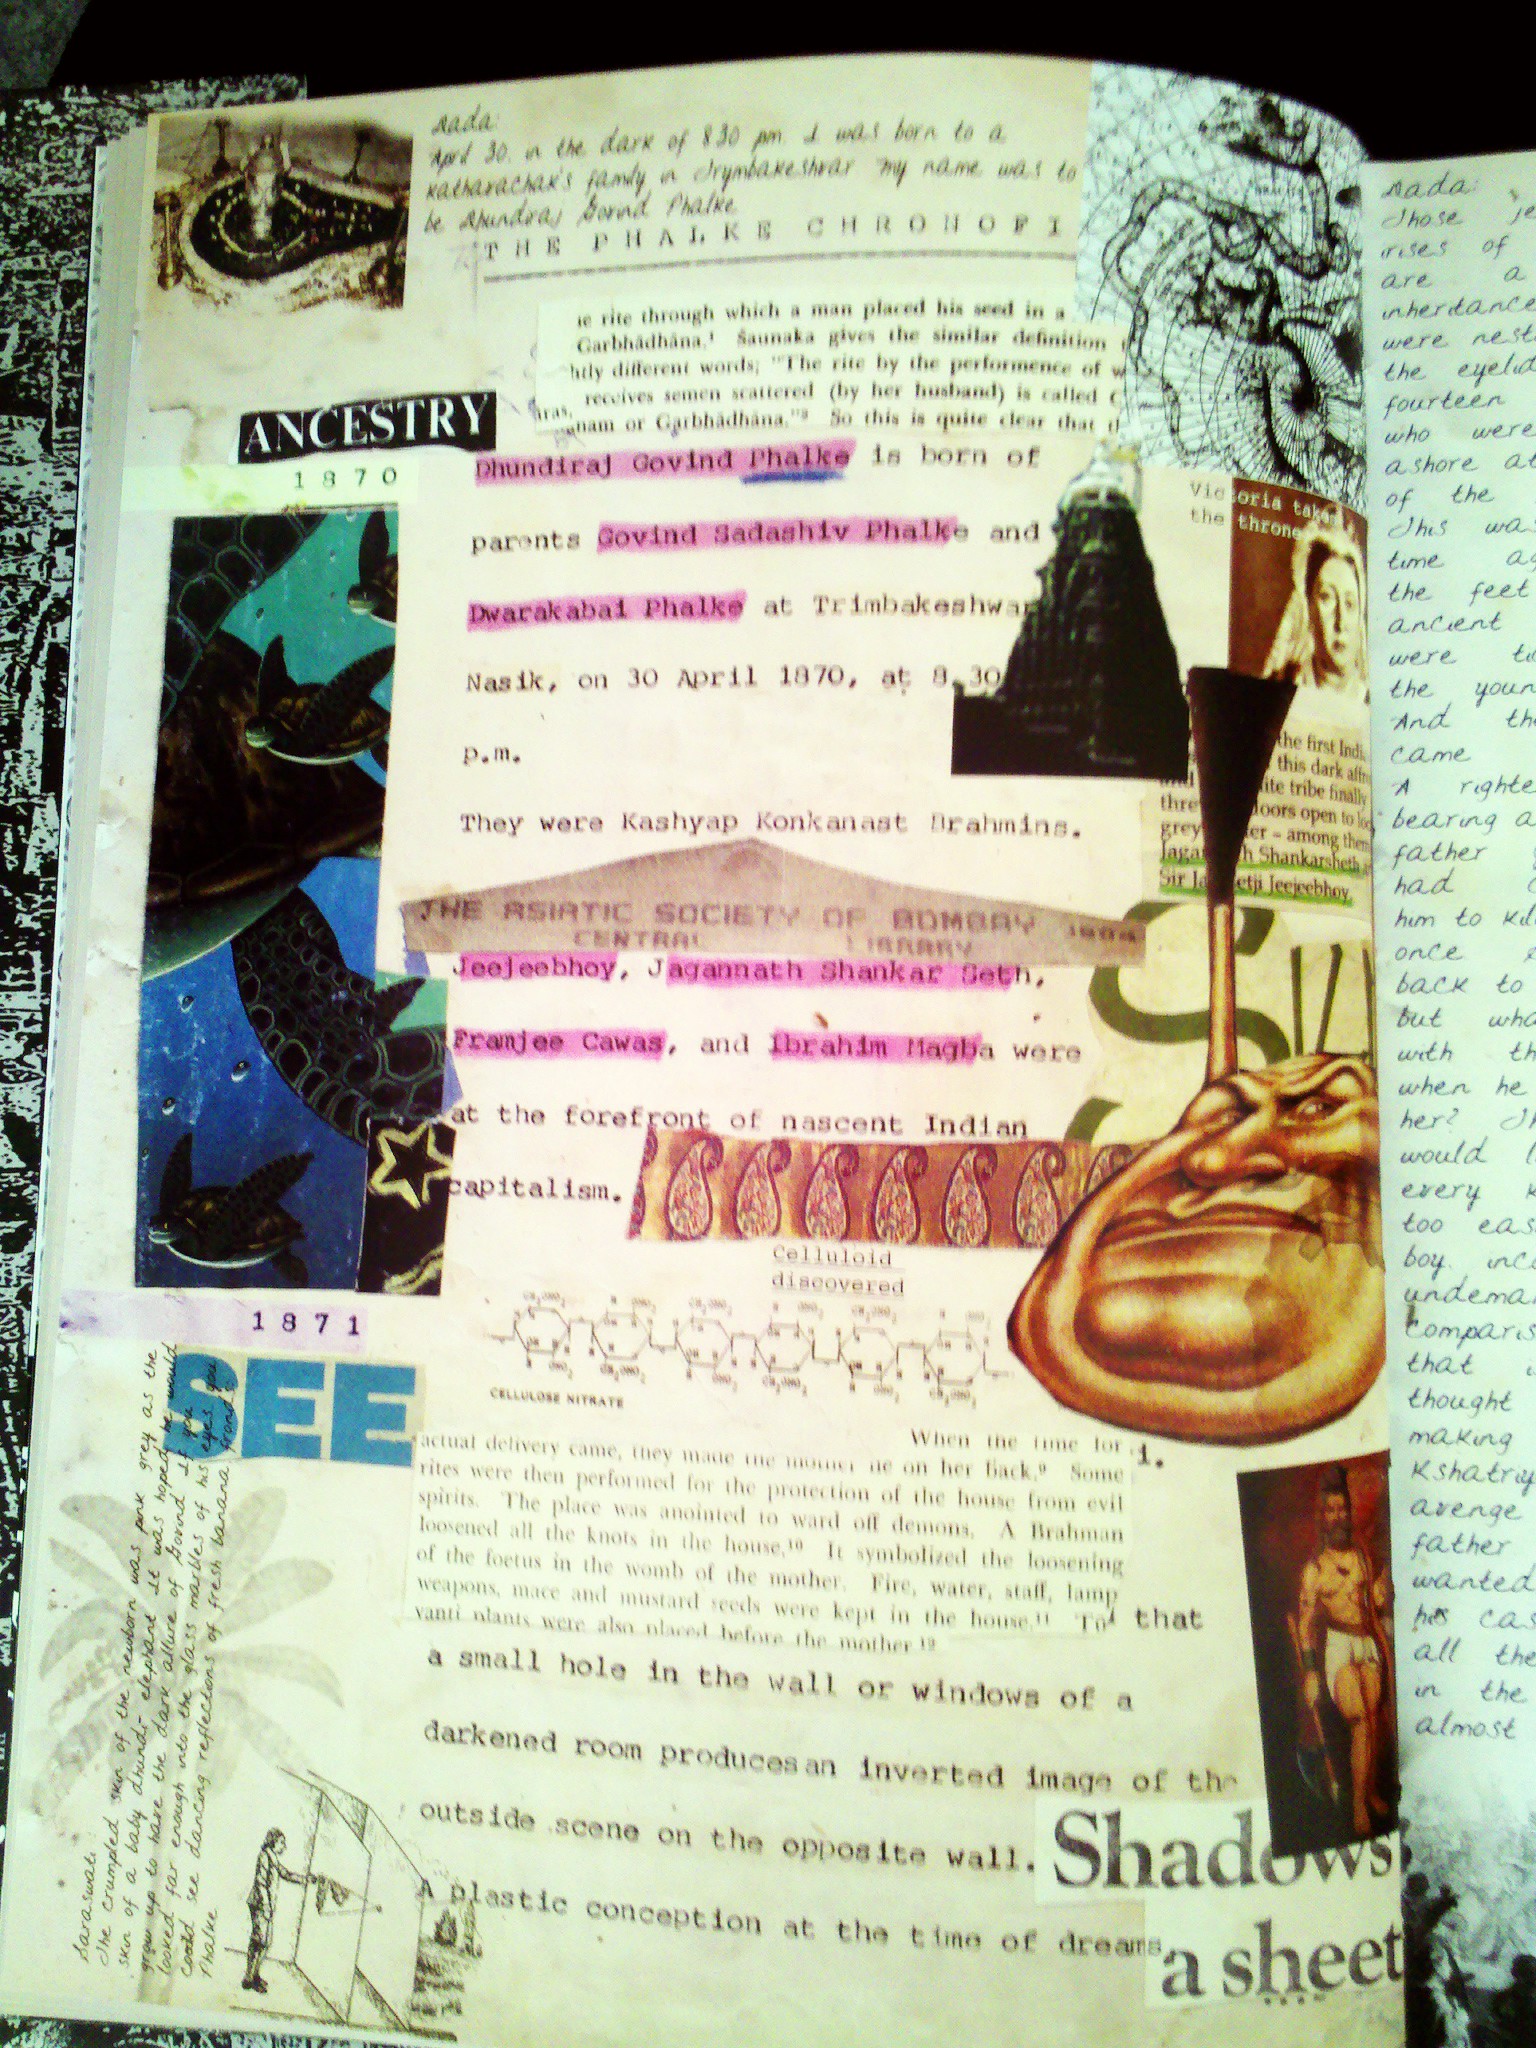 Dada:
April 30. in the dark of 830 pm. I was born to a
Katharachak's family in Trymbakeshvar my name was to
be Dhundiraj Govind Phalke
THE PHALKE CHRONOFI
ie rite through which a man placed his seed in a
Garbhādhāna.¹ Śaunaka gives the similar definition
htly different words; "The rite by the performence of w
receives semen scattered (by her husband) is called G
aras.
gnam or Garbhādhāna."² So this is quite clear that th
ANCESTRY
1870
Dhundiraj Govind Phalke is born of
parents Govind Sadashiv Phalke and
Dwarakabai Phalke at Trimbakeshwar
Nasik, on 30 April 1870, at 8.30
p.m.
They were Kashyap Konkanast Brahmins.
THE ASIATIC SOCIETY OF BOMBAY 1804
CENTRAL LIBRARY
Jeejeebhoy, Jagannath Shankar Seth,
Framjee Cawas, and Ibrahim Magba were
at the forefront of nascent Indian
capitalism.
Victoria takes
the throne
the first Indi
this dark affr
and ite tribe finally
thre doors open to loc
grey ter – among them
Jagan h Shankarsheth a
Sir Ja etji Jeejeebhoy.
Celluloid
discovered
CELLULOSE NITRATE
1871
BEE
When the time for
actual delivery came, they made the mother lie on her back.⁹ Some
rites were then performed for the protection of the house from evil
spirits. The place was anointed to ward off demons. A Brahman
loosened all the knots in the house.¹⁰ It symbolized the loosening
of the foetus in the womb of the mother. Fire, water, staff, lamp
weapons, mace and mustard seeds were kept in the house.¹¹ To
vanti plants were also placed before the mother.¹²
1.
that
a small hole in the wall or windows of a
darkened room produces an inverted image of the
outside scene on the opposite wall.
A plastic conception at the time of dreams
Shadows
a sheet
Saraswati:
The crumpled skin of the newborn was pink grey as the
skin of a baby dhundi-elephant. It was hoped he would
grow up to have the dark allure of Govind. If you
looked far enough into the glass marbles of his eyes you
could see dancing reflections of fresh banana fronds.
Phalke
Dada:
Those je
irises of
are a
inheritance
were nest
the eyelid
fourteen
who were
ashore at
of the
This was
time ag
the feet
ancient
were to
the youn
And the
came
A righte
bearing a
father
had
him to kil
once
back to
but wha
with th
when he
her? Th
would l
every k
too eas
boy. inca
undeman
comparis
that i
thought
making
Kshatriy
avenge
father
wanted
his cas
all the
in the
almost